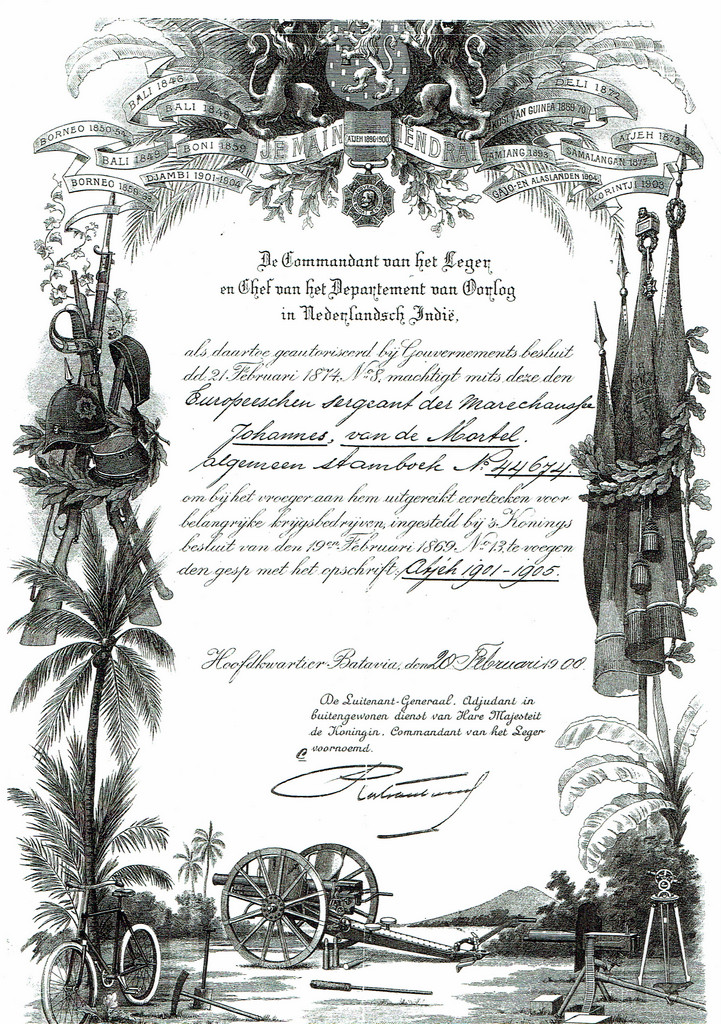 BALI 1846
BALI 1848
BORNEO 1850-54
BALI 1849
BONI 1859
BORNEO 1859-63
DJAMBI 1901-1904
DELI 1872
KUST VAN GUINEA 1869-70
ATJEH 1873-
TAMIANG 1893
SAMALANGAN 1877
GAJO-EN ALASLANDEN 1904
KORINTJI 1903
JE MAINTIENDRAI
ATJEH 1896-1900
De Commandant van het Leger
en Chef van het Departement van Oorlog
in Nederlandsch Indië,
als daartoe geautoriseerd bij Gouvernements besluit
dd. 21 Februari 1874, No. 8, machtigt mits deze den
Europeeschen sergeant der Marechaussee
Johannes, van de Mortel.
algemeen stamboek No. 44674
om bij het vroeger aan hem uitgereikt eereteeken voor
belangrijke krijgsbedrijven, ingesteld bij 's Konings
besluit van den 19en Februari 1869 No. 13, te voegen
den gesp met het opschrift, Atjeh 1901-1905.
Hoofdkwartier Batavia, den 20 Februari 190
De Luitenant-Generaal, Adjudant in
buitengewonen dienst van Hare Majesteit
de Koningin, Commandant van het Leger
voornoemd.